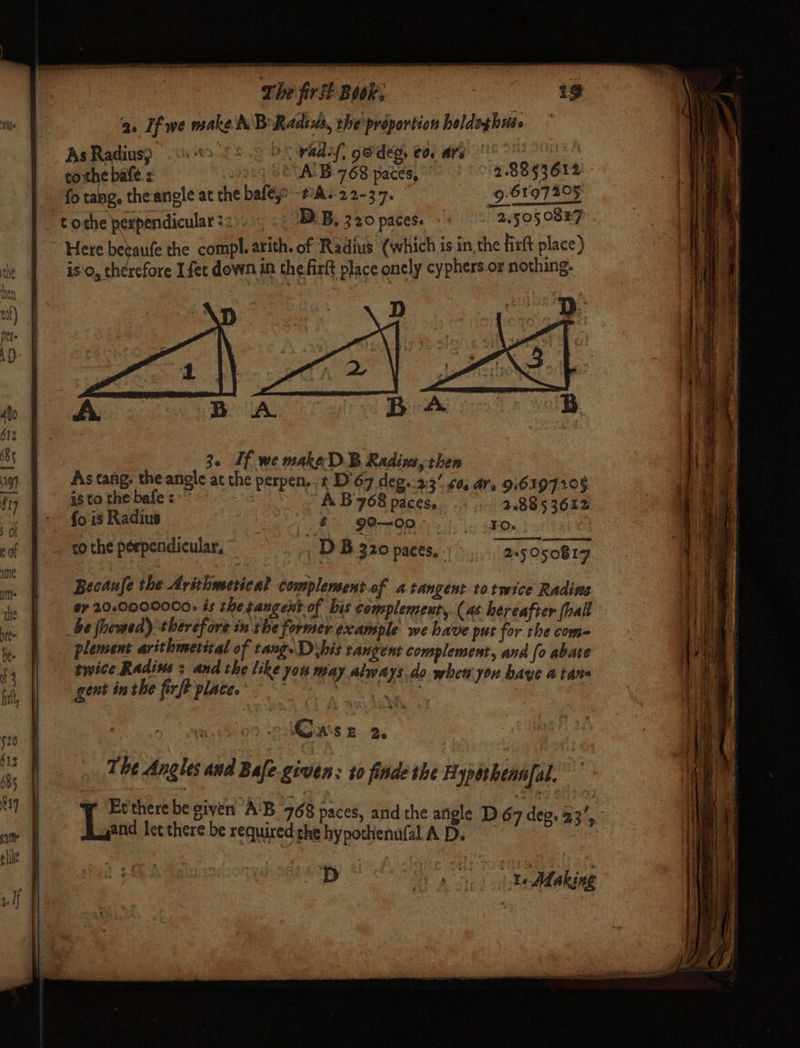 The first Book. 19
2. If we make A B Radius, the proportion holds thus.
As Radius, radif. 90 deg. co. ar.
to the base: A B 768 paces, 2.8853612
so tang. the angle at the base, t A. 22-37. 9.6197205
to the perpendicular: D B. 320 paces. 2.5050817
Here because the compl. arith. of Radius (which is in the first place)
is 0, therefore I set down in the first place onely cyphers or nothing.
D D D
1 2 3
A B A B A B
3. If we make D B Radius, then
As tang. the angle at the perpen. t D 67 deg. 23'. co. ar. 9.6197205
is to the base: A B 768 paces, 2.8853612
so is Radius 90—00 10.
to the perpendicular, D B 320 paces, 2.5050817
Because the Arithmetical complement of a tangent to twice Radius
or 20.0000000. is the tangent of his complement, (as hereafter shall
be shewed) therefore in the former example we have put for the com-
plement arithmetical of tang. D, his tangent complement, and so abate
twice Radius: and the like you may always do when you have a tan-
gent in the first place.
Case 2.
The Angles and Base given: to finde the Hypothenusal.
Let there be given A B 768 paces, and the angle D 67 deg. 23',
and let there be required the hypothenusal A D.
D 1. Making